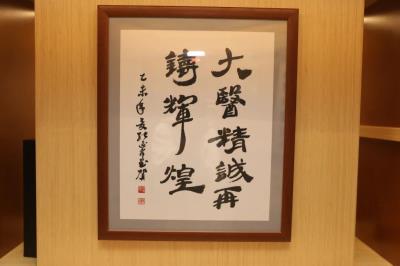 大醫精誠再
鑄輝煌
乙未年